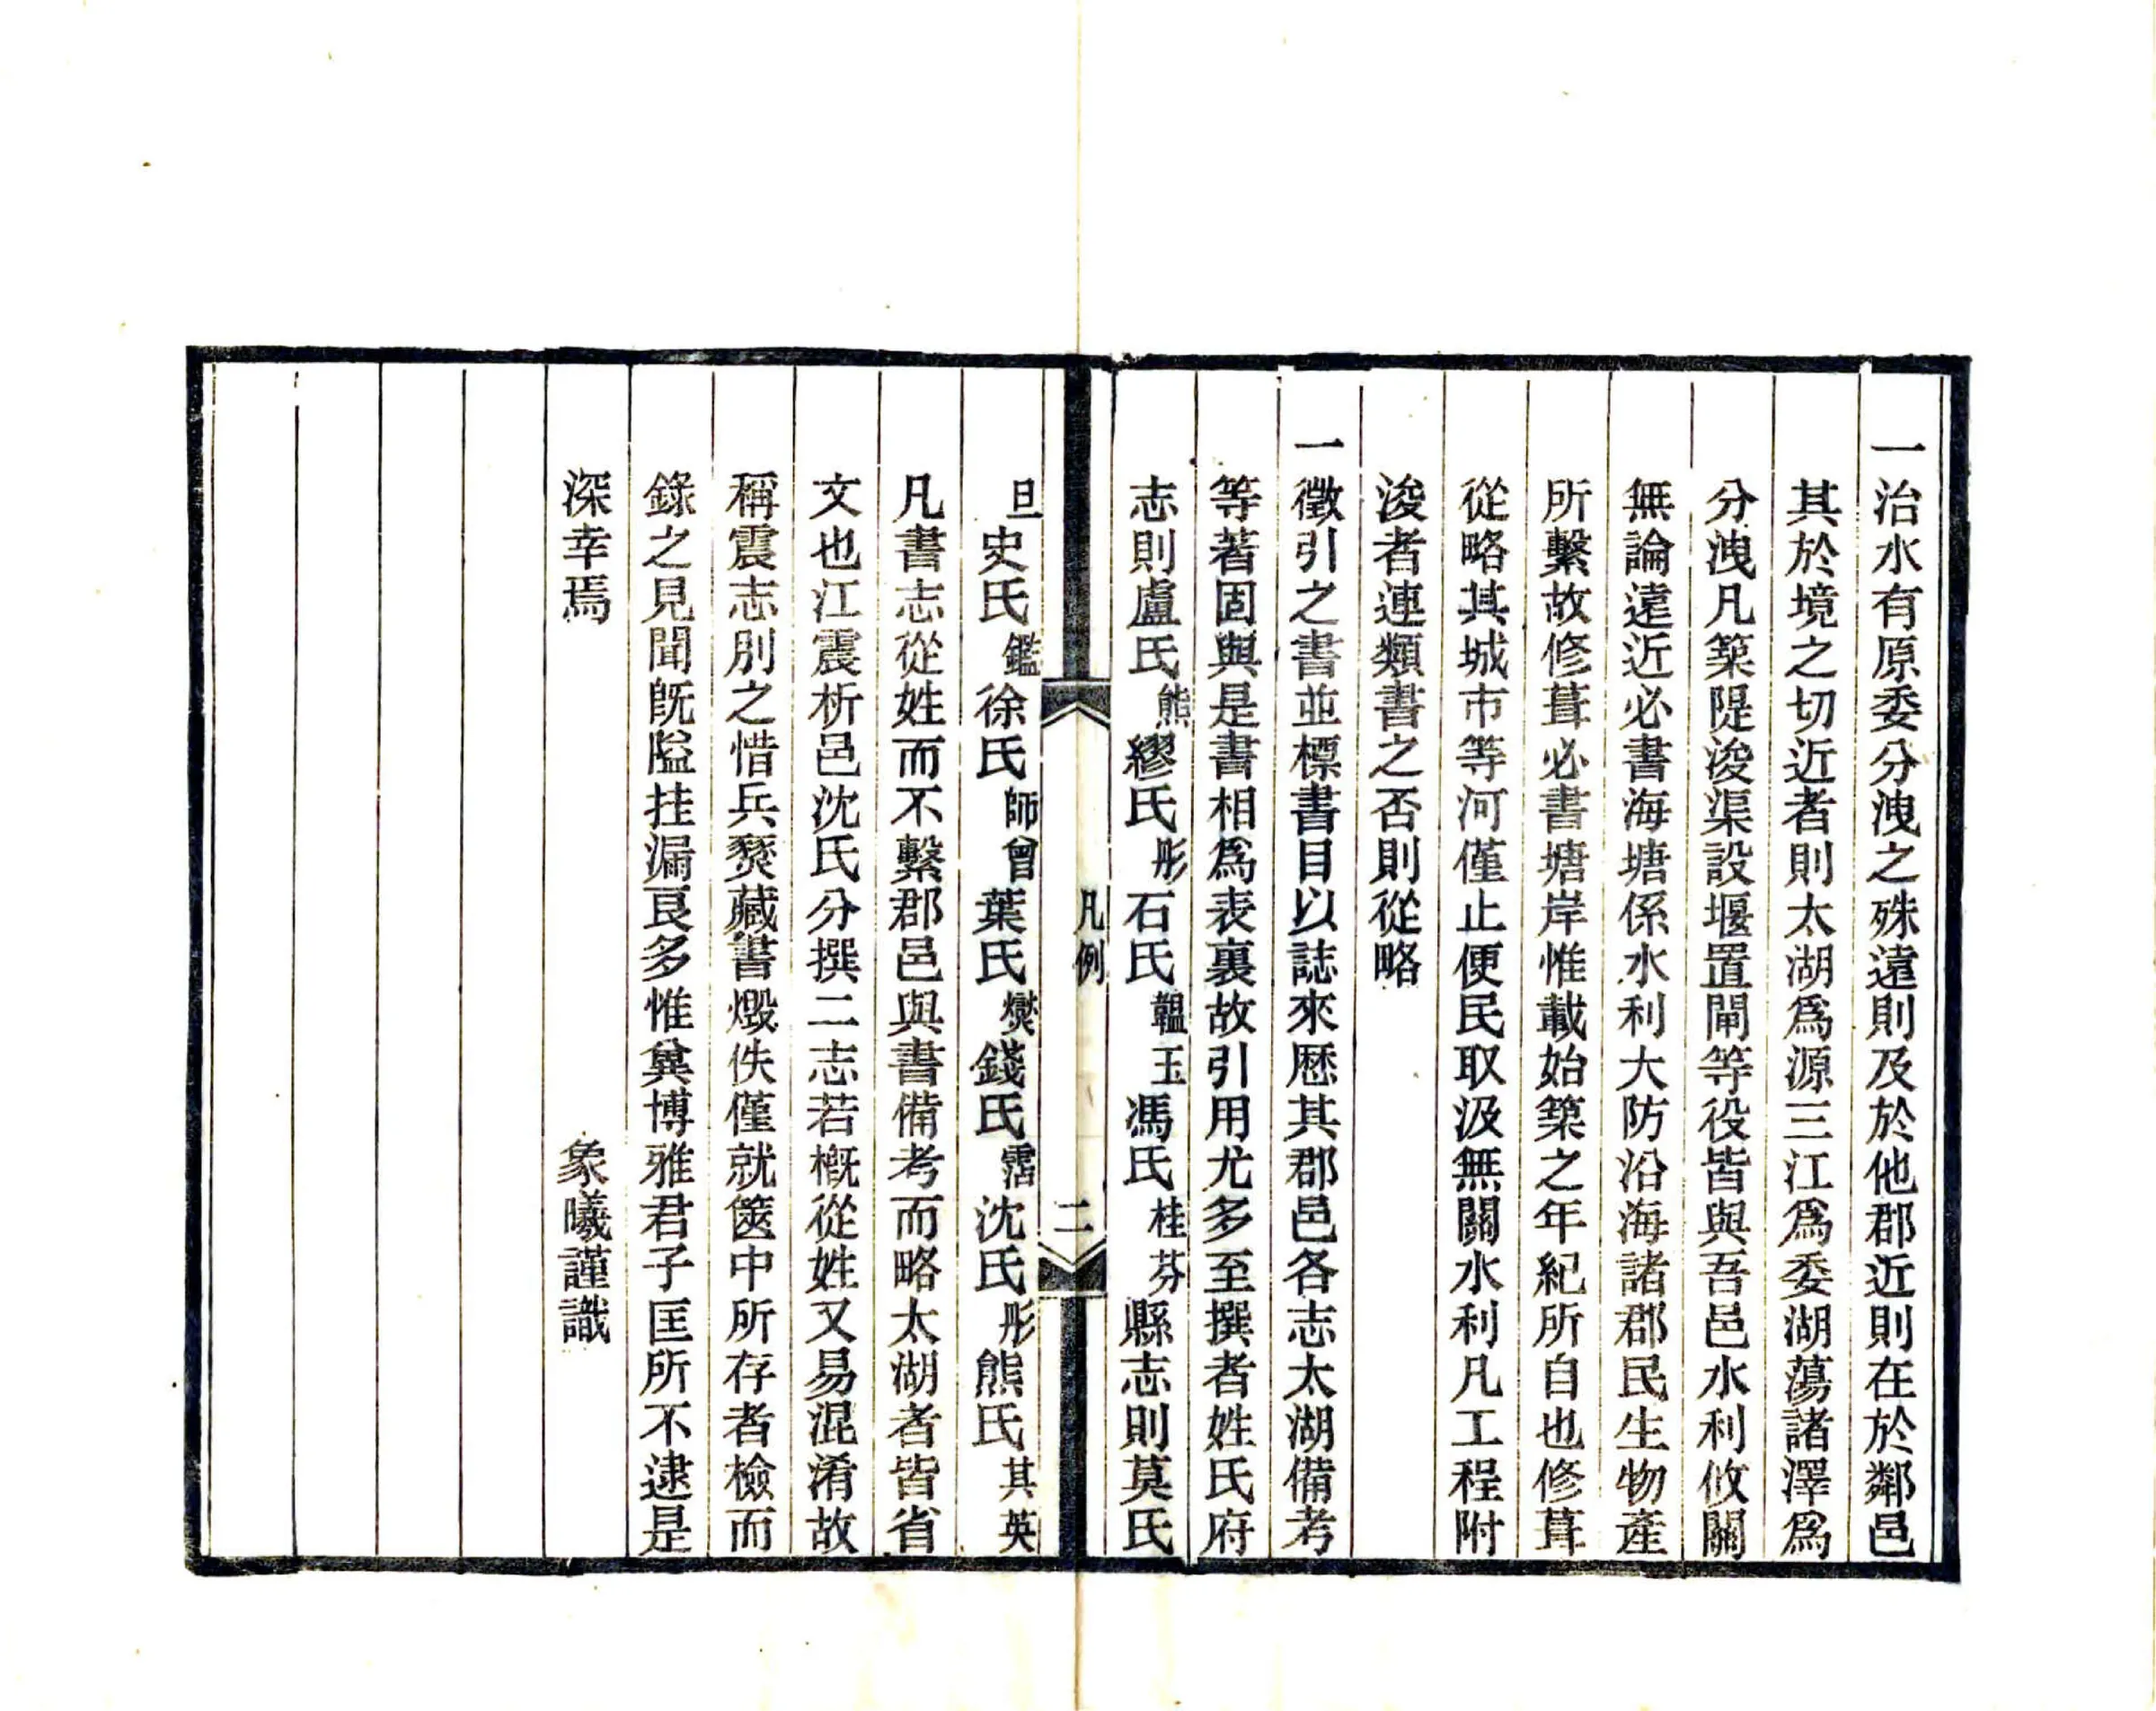 一治水有原委分洩之殊遠則及於他郡近則在於鄰邑
其於境之切近者則太湖爲源三江爲委湖蕩諸澤爲
分洩凡築隄浚渠設堰置閘等役皆與吾邑水利攸關
無論遠近必書海塘係水利大防沿海諸郡民生物產
所繫故修葺必書塘岸惟載始築之年紀所自也修葺
從略其城市等河僅止便民取汲無關水利凡工程附
浚者連類書之否則從略
一徵引之書並標書目以誌來歷其郡邑各志太湖備考
等著固與是書相爲表裏故引用尤多至撰者姓氏府
志則盧氏熊繆氏彤石氏韞玉馮氏桂芬縣志則莫氏
凡例
二
旦史氏鑑徐氏師曾葉氏燮錢氏霑沈氏彤熊氏其英
凡書志從姓而不繫郡邑與書備考而略太湖者皆省
文也江震析邑沈氏分撰二志若槪從姓又易混淆故
稱震志別之惜兵燹藏書燬佚僅就篋中所存者檢而
錄之見聞旣隘挂漏良多惟冀博雅君子匡所不逮是
深幸焉
象曦謹識